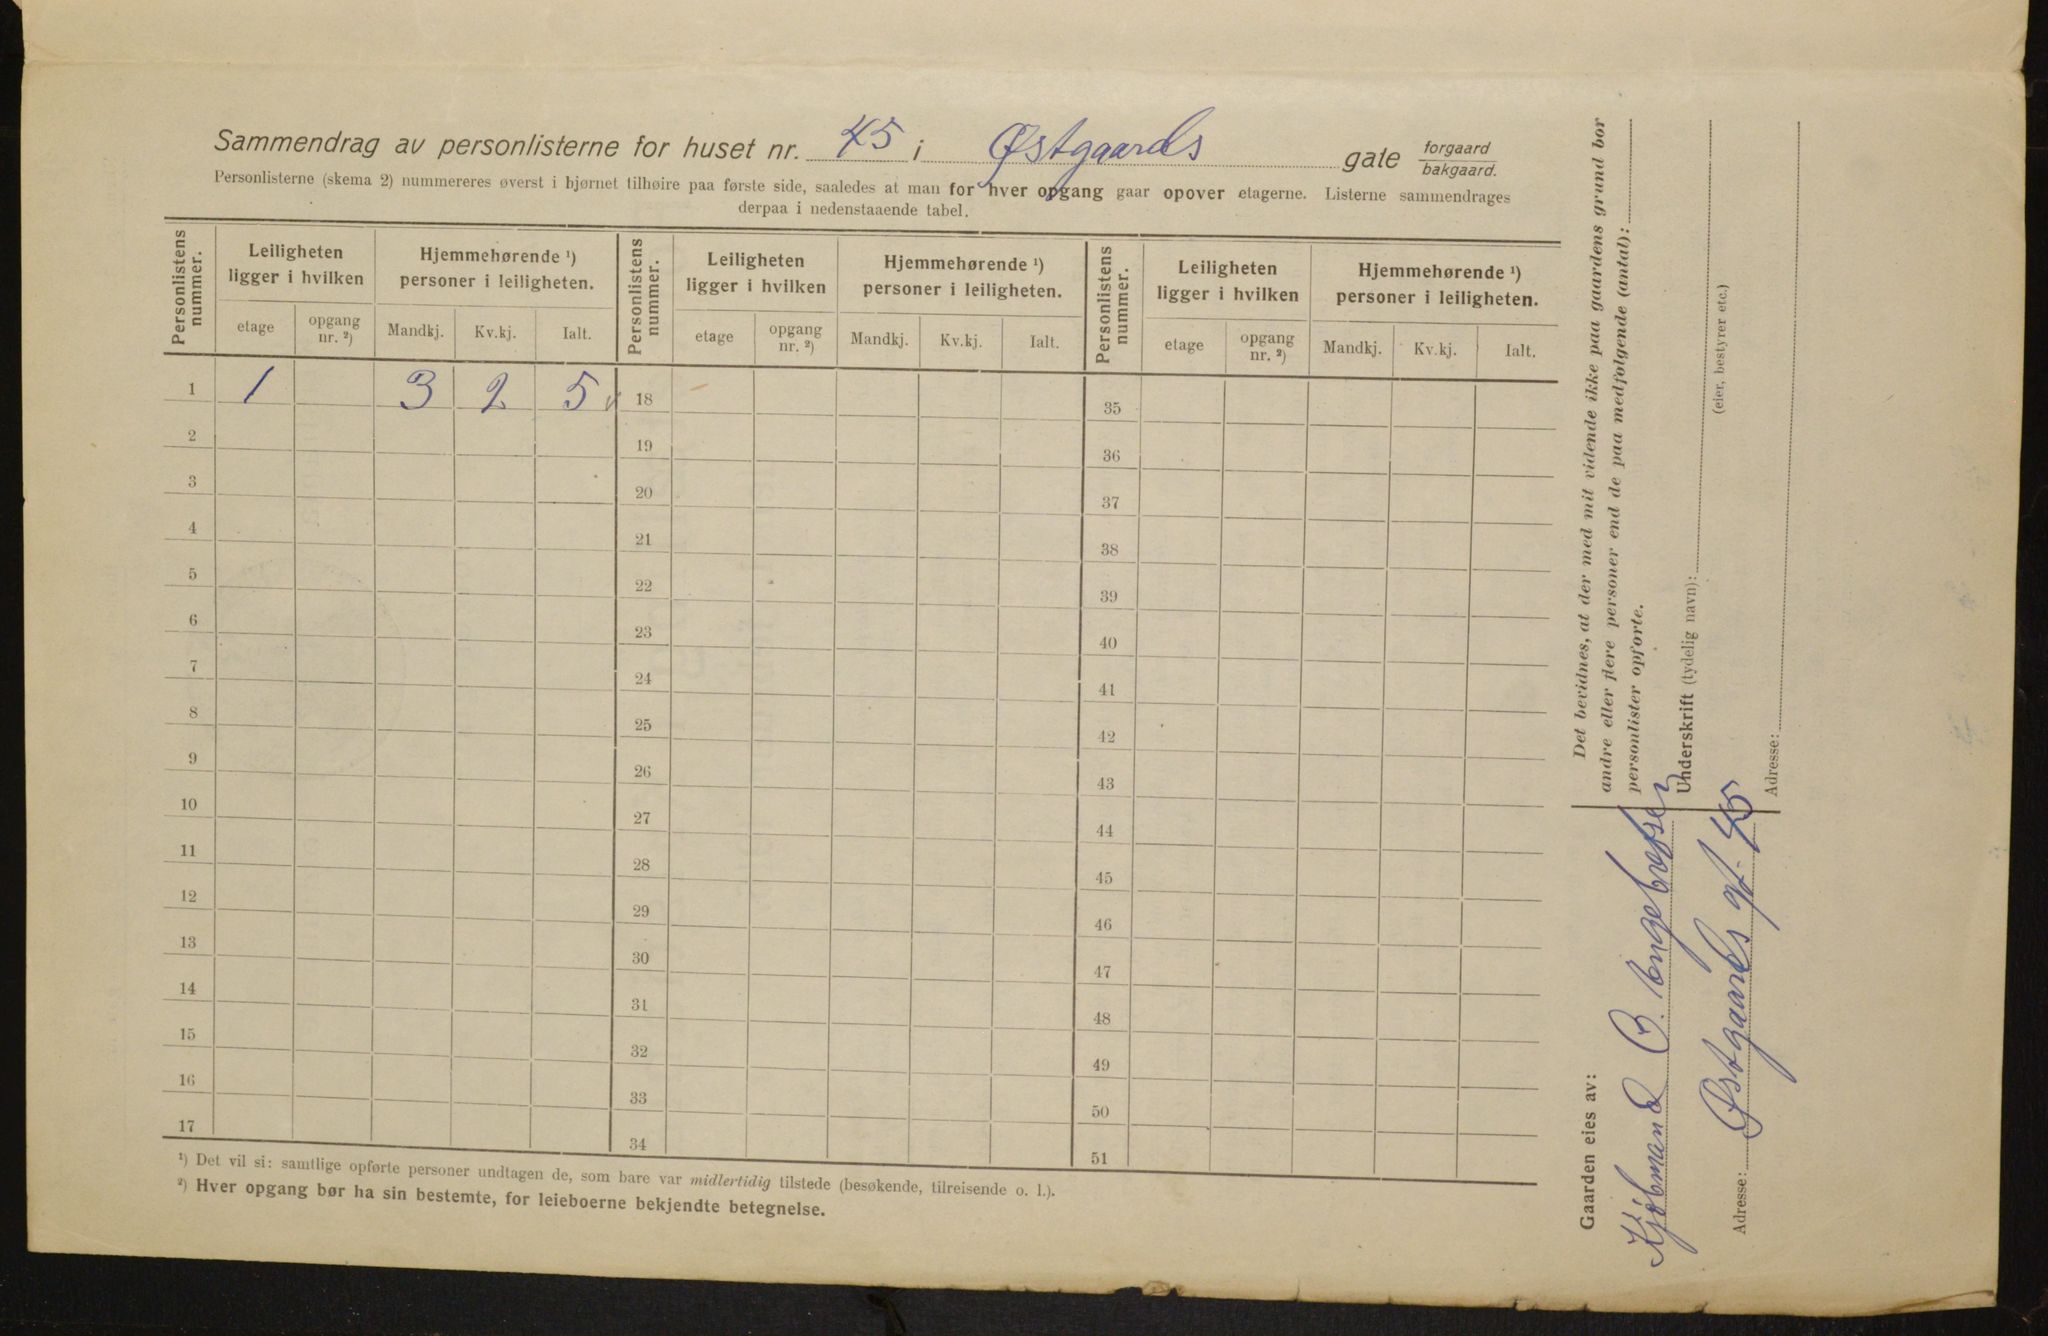 Sammendrag av personlisterne for huset nr. 45 i Østgaards gate forgaard
bakgaard.
Personlisterne (skema 2) nummereres øverst i hjørnet tilhøire paa første side, saaledes at man for hver opgang gaar opover etagerne. Listerne sammendrages
derpaa i nedenstaaende tabel.
Personlistens nummer. Leiligheten ligger i hvilken Hjemmehørende ¹) personer i leiligheten. Personlistens nummer. Leiligheten ligger i hvilken Hjemmehørende ¹) personer i leiligheten. Personlistens nummer. Leiligheten ligger i hvilken Hjemmehørende ¹) personer i leiligheten.
etage opgang nr. ²) Mandkj. Kv.kj. Ialt. etage opgang nr. ²) Mandkj. Kv.kj. Ialt. etage opgang nr. ²) Mandkj. Kv.kj. Ialt.
1 1 3 2 5 18 35
2 19 36
3 20 37
4 21 38
5 22 39
6 23 40
7 24 41
8 25 42
9 26 43
10 27 44
11 28 45
12 29 46
13 30 47
14 31 48
15 32 49
16 33 50
17 34 51
¹) Det vil si: samtlige opførte personer undtagen de, som bare var midlertidig tilstede (besøkende, tilreisende o. l.).
²) Hver opgang bør ha sin bestemte, for leieboerne bekjendte betegnelse.
Det bevidnes, at der med mit vidende ikke paa gaardens grund bor
andre eller flere personer end de paa medfølgende (antal):
personlister opførte.
Underskrift (tydelig navn):
(eier, bestyrer etc.)
Adresse:
Gaarden eies av:
Kjøbmand O. Engebretsen
Adresse: Østgaards gt. 45